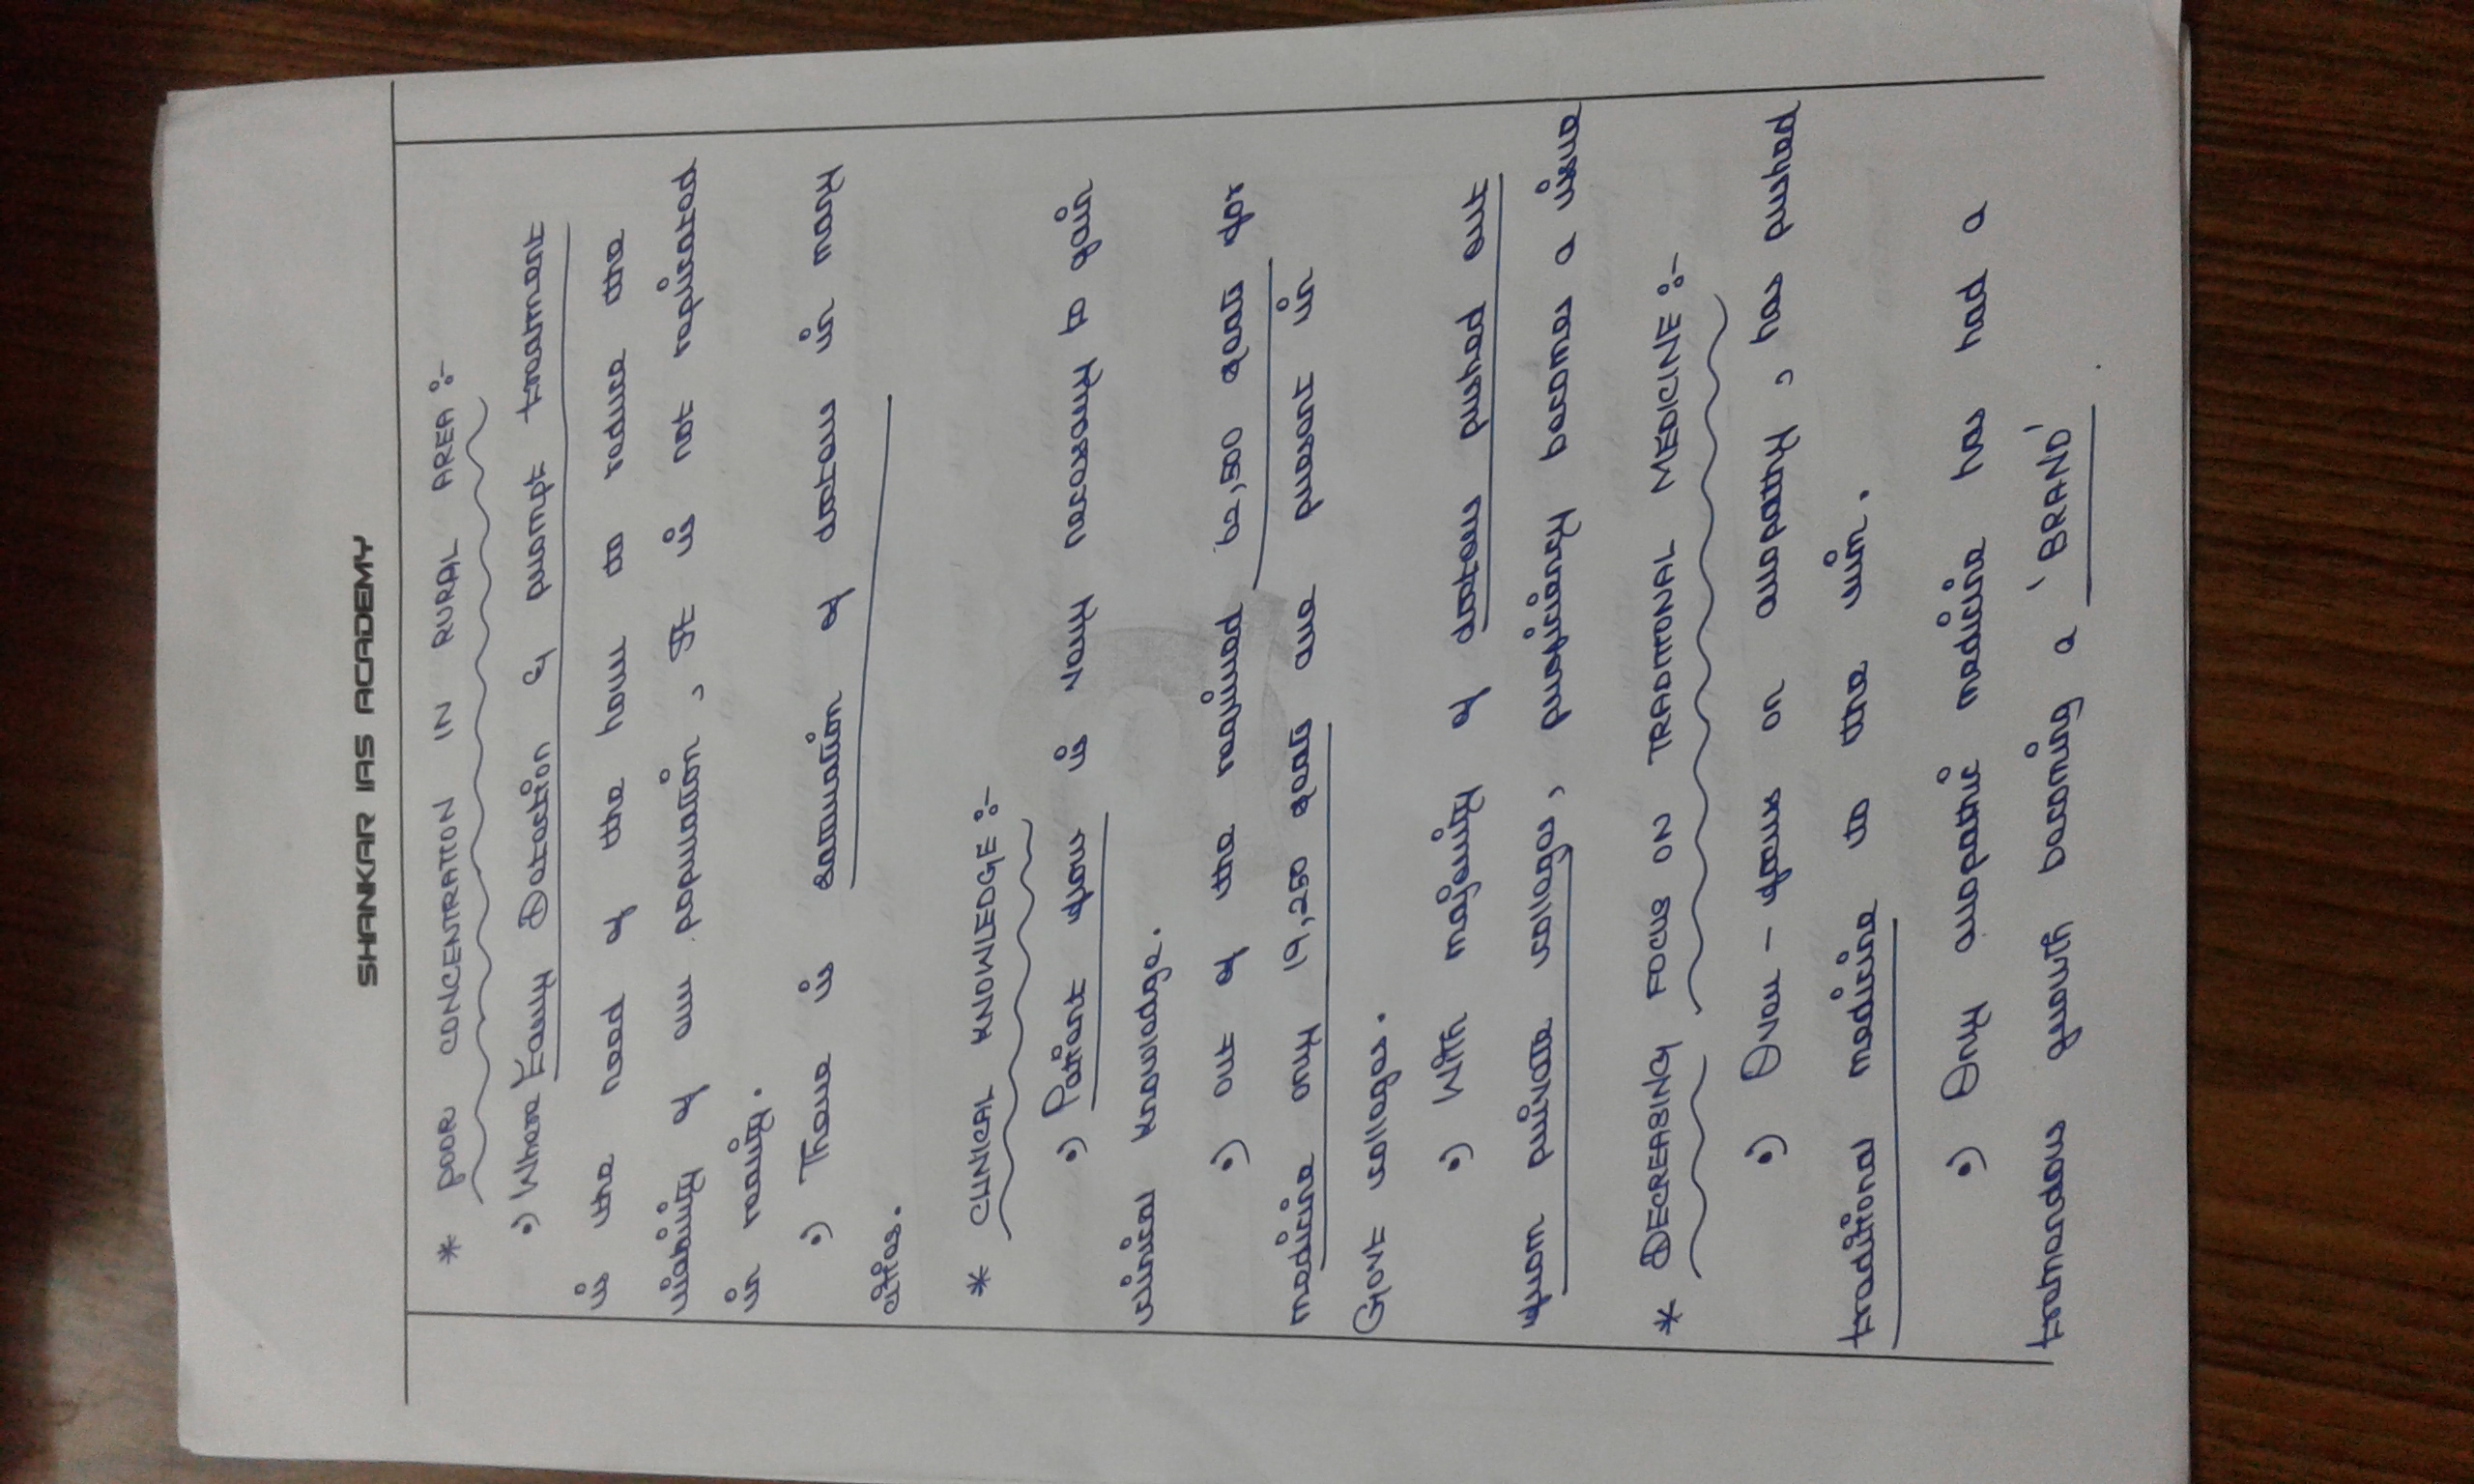 SHANKAR IAS ACADEMY
* POOR CONCENTRATION IN RURAL AREA :-
•) When Early Detection & prompt treatment
is the need of the hour to reduce the
liability of our population, It is not replicated
in reality.
•) There is saturation of doctors in many
cities.
* CLINICAL KNOWLEDGE :-
•) Patient flow is very necessary to gain
clinical knowledge.
•) out of the required 62,500 seats for
medicine only 19,250 seats are present in
Govt colleges.
•) With majority of doctors pushed out
from private colleges, proficiency becomes a issue
* DECREASING FOCUS ON TRADITIONAL MEDICINE :-
•) Over-focus on allopathy, has pushed
traditional medicine to the rim.
•) Only allopathic medicine has had a
tremendous growth becoming a 'BRAND'